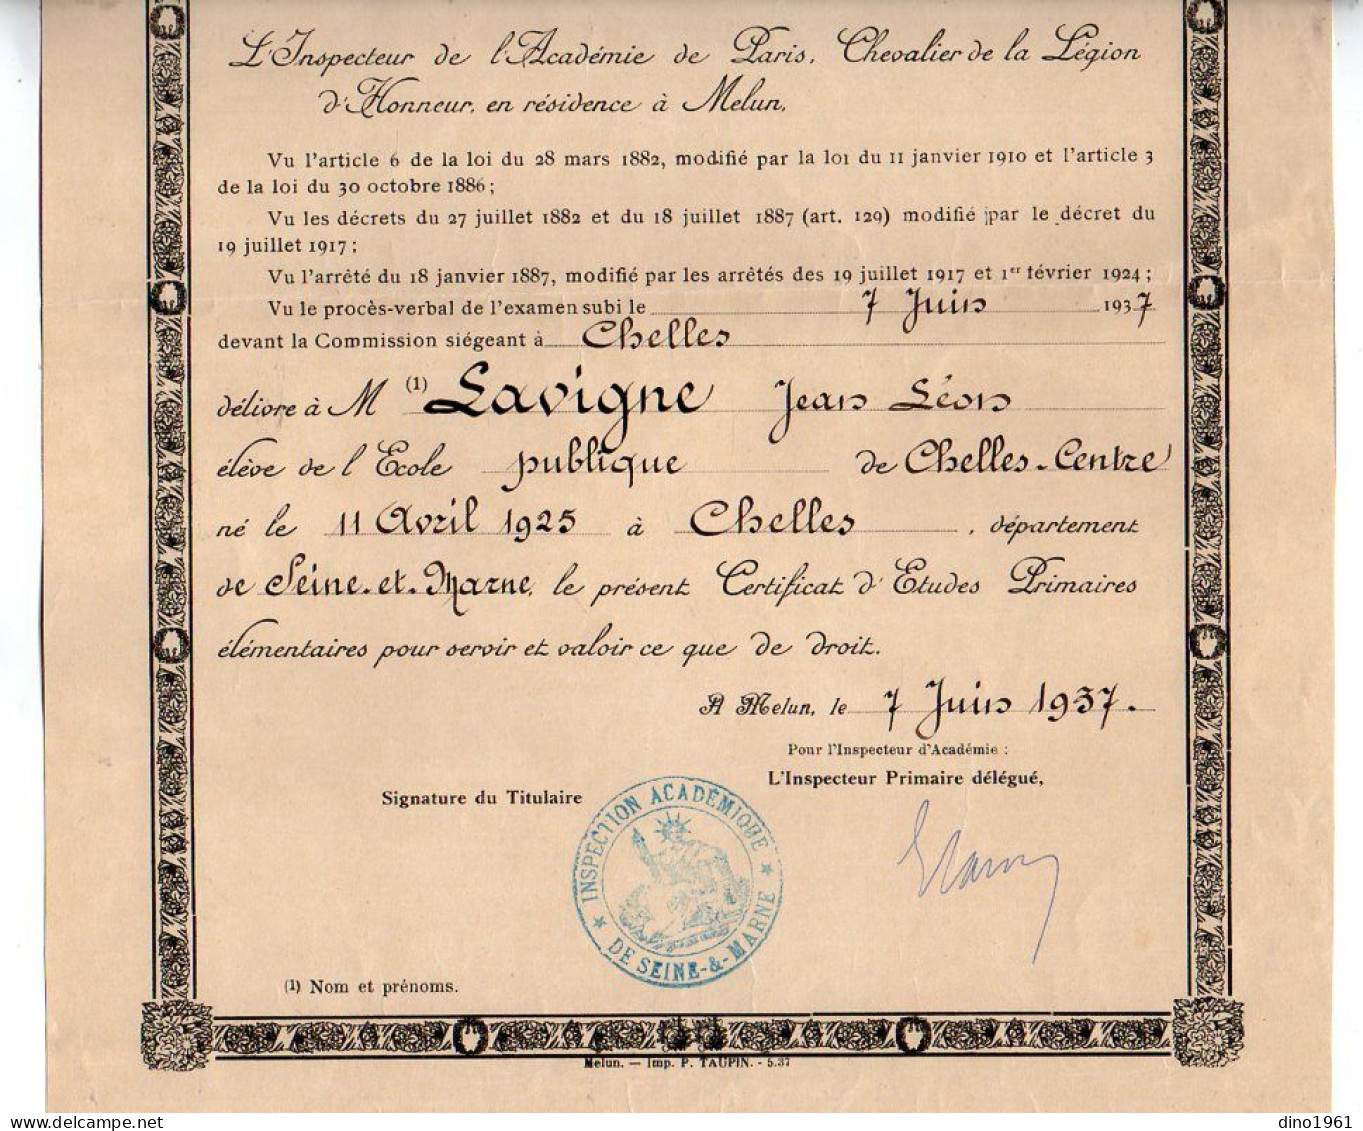 L'Inspecteur de l'Académie de Paris, Chevalier de la Légion
d'Honneur, en résidence à Melun,
Vu l'article 6 de la loi du 28 mars 1882, modifié par la loi du 11 janvier 1910 et l'article 3
de la loi du 30 octobre 1886 ;
Vu les décrets du 27 juillet 1882 et du 18 juillet 1887 (art. 129) modifié par le décret du
19 juillet 1917 ;
Vu l'arrêté du 18 janvier 1887, modifié par les arrêtés des 19 juillet 1917 et 1er février 1924 ;
Vu le procès-verbal de l'examen subi le 7 Juin 1937
devant la Commission siégeant à Chelles
délivre à M (1) Lavigne Jean Léon
élève de l'Ecole publique de Chelles-Centre
né le 11 Avril 1925 à Chelles, département
de Seine-et-Marne, le présent Certificat d'Etudes Primaires
élémentaires pour servir et valoir ce que de droit.
A Melun, le 7 Juin 1937.
Pour l'Inspecteur d'Académie :
L'Inspecteur Primaire délégué,
Signature du Titulaire
INSPECTION ACADÉMIQUE
DE SEINE-&-MARNE
(1) Nom et prénoms.
Melun. — Imp. P. TAUPIN. - 5.37
dino1961